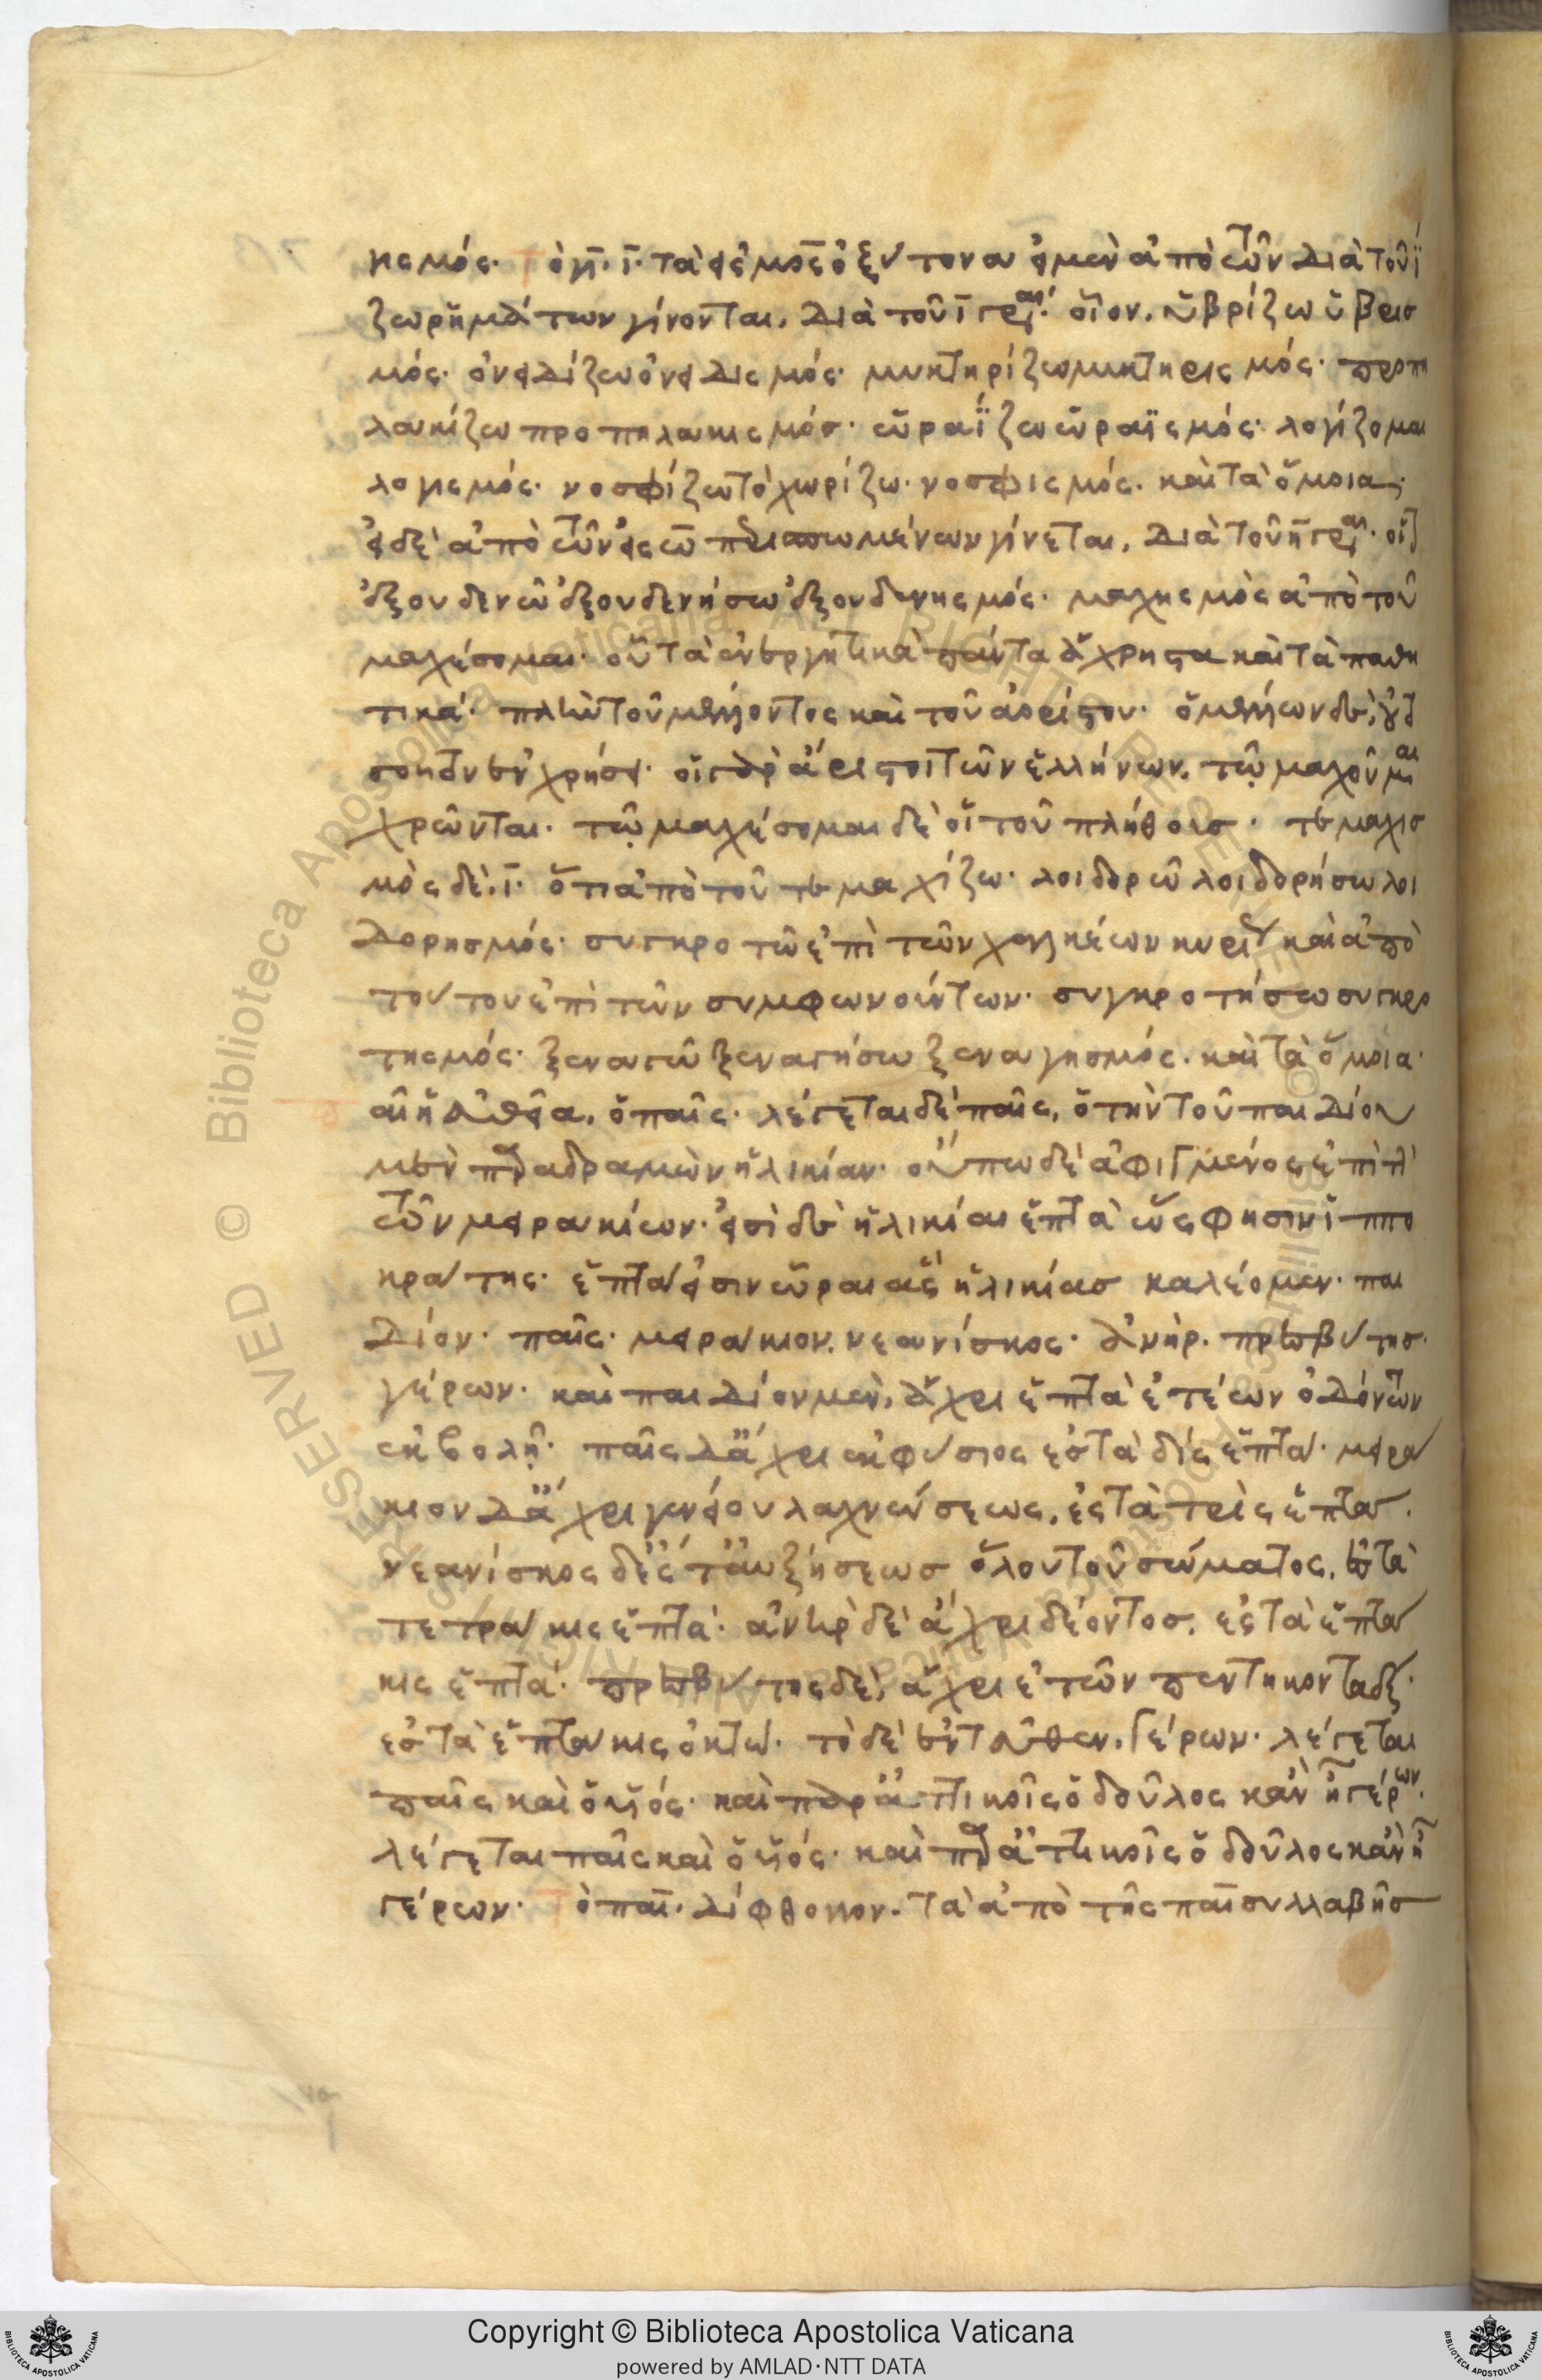 κισμός· τὸ κι, ι· τὰ εἰς μος ὀξύτονα εἰ μὲν ἀπὸ τῶν διὰ τοῦ ί
ζω ῥημάτων γίνονται, διὰ τοῦ ι γράφεται· οἷον, ὑβρίζω ὑβρισ
μός· ὀνειδίζω ὀνειδισμός· μυκτηρίζω μυκτηρισμός· προπη
λακίζω προπηλακισμός· ὡραΐζω ὡραϊσμός· λογίζομαι
λογισμός· νοσφίζω τὸ χωρίζω· νοσφισμός· καὶ τὰ ὅμοια·
εἰ δὲ ἀπὸ τῶν εἰς ω περισπωμένων γίνεται, διὰ τοῦ η γράφεται· οἷον
ἐξουδενῶ ἐξουδενήσω ἐξουδενησμός· μαχησμὸς ἀπὸ τοῦ
μαχέσομαι· οὗ τὰ ἐνεργητικὰ πάντα ἄχρηστα καὶ τὰ παθη
τικά· πλὴν τοῦ μέλλοντος καὶ τοῦ ἀορίστου· ὁ μέλλων δὲ,
χρήσει· οἱ γὰρ ἄριστοι τῶν ἑλλήνων, τῷ μαχοῦμαι
χρῶνται· τῷ μαχέσομαι δὲ οἱ τοῦ πλήθους· τεμαχισ
μὸς δὲ, ι· ὅτι ἀπὸ τοῦ τεμαχίζω· λοιδορῶ λοιδορήσω λοι
δορησμός· συγκροτῶ ἐπὶ τῶν χαλκέων κυρίως καὶ ἀπὸ
τούτου ἐπὶ τῶν συμφωνούντων· συγκροτήσω συγκρο
τησμός· ξεναγῶ ξεναγήσω ξεναγησμός· καὶ τὰ ὅμοια·
αἲ ἡ εὐθεῖα, ὁ παῖς· λέγεται δὲ παῖς, ὁ τὴν τοῦ παιδίου
μὲν παραδραμὼν ἡλικίαν· οὔπω δὲ ἀφιγμένος ἐπὶ τὴν
τῶν μειρακίων· εἰσὶ δὲ ἡλικίαι ἑπτὰ ὥς φησιν ἱππο
κράτης· ἑπτά εἰσιν ὧραι ἃς ἡλικίας καλέομεν· παι
δίον· παῖς· μειράκιον· νεανίσκος· ἀνήρ· πρεσβύτης·
γέρων· καὶ παιδίον μὲν, ἄχρι ἑπτὰ ἐτέων ὀδόντων
ἐκβολῇ· παῖς δ' ἄχρι ἐκφύσιος ἐς τὰ δὶς ἑπτά· μειρά
κιον δ' ἄχρι γενείου λαχνώσεως, ἐς τὰ τρὶς ἑπτά·
νεανίσκος δὲ ἐς τ' αὐξήσεως ὅλου τοῦ σώματος, ἐς τὰ
τετράκις ἑπτά· ἀνὴρ δὲ ἄχρι δέοντος, ἐς τὰ ἑπτά
κις ἑπτά· πρεσβύτης δὲ, ἄχρι ἐτῶν πεντήκοντα ἕξ·
ἐς τὰ ἑπτάκις ὀκτώ· τὸ δὲ ἐντεῦθεν, γέρων· λέγεται
παῖς καὶ ὁ υἱός· καὶ παρ' ἀττικοῖς ὁ δοῦλος κἂν ᾖ γέρων·
λέγεται παῖς καὶ ὁ υἱός· καὶ παρ' ἀττικοῖς ὁ δοῦλος κἂν ᾖ
γέρων· τὸ παι, δίφθογγον· τὰ ἀπὸ τῆς παι συλλαβῆς
Copyright © Biblioteca Apostolica Vaticana
powered by AMLAD·NTT DATA